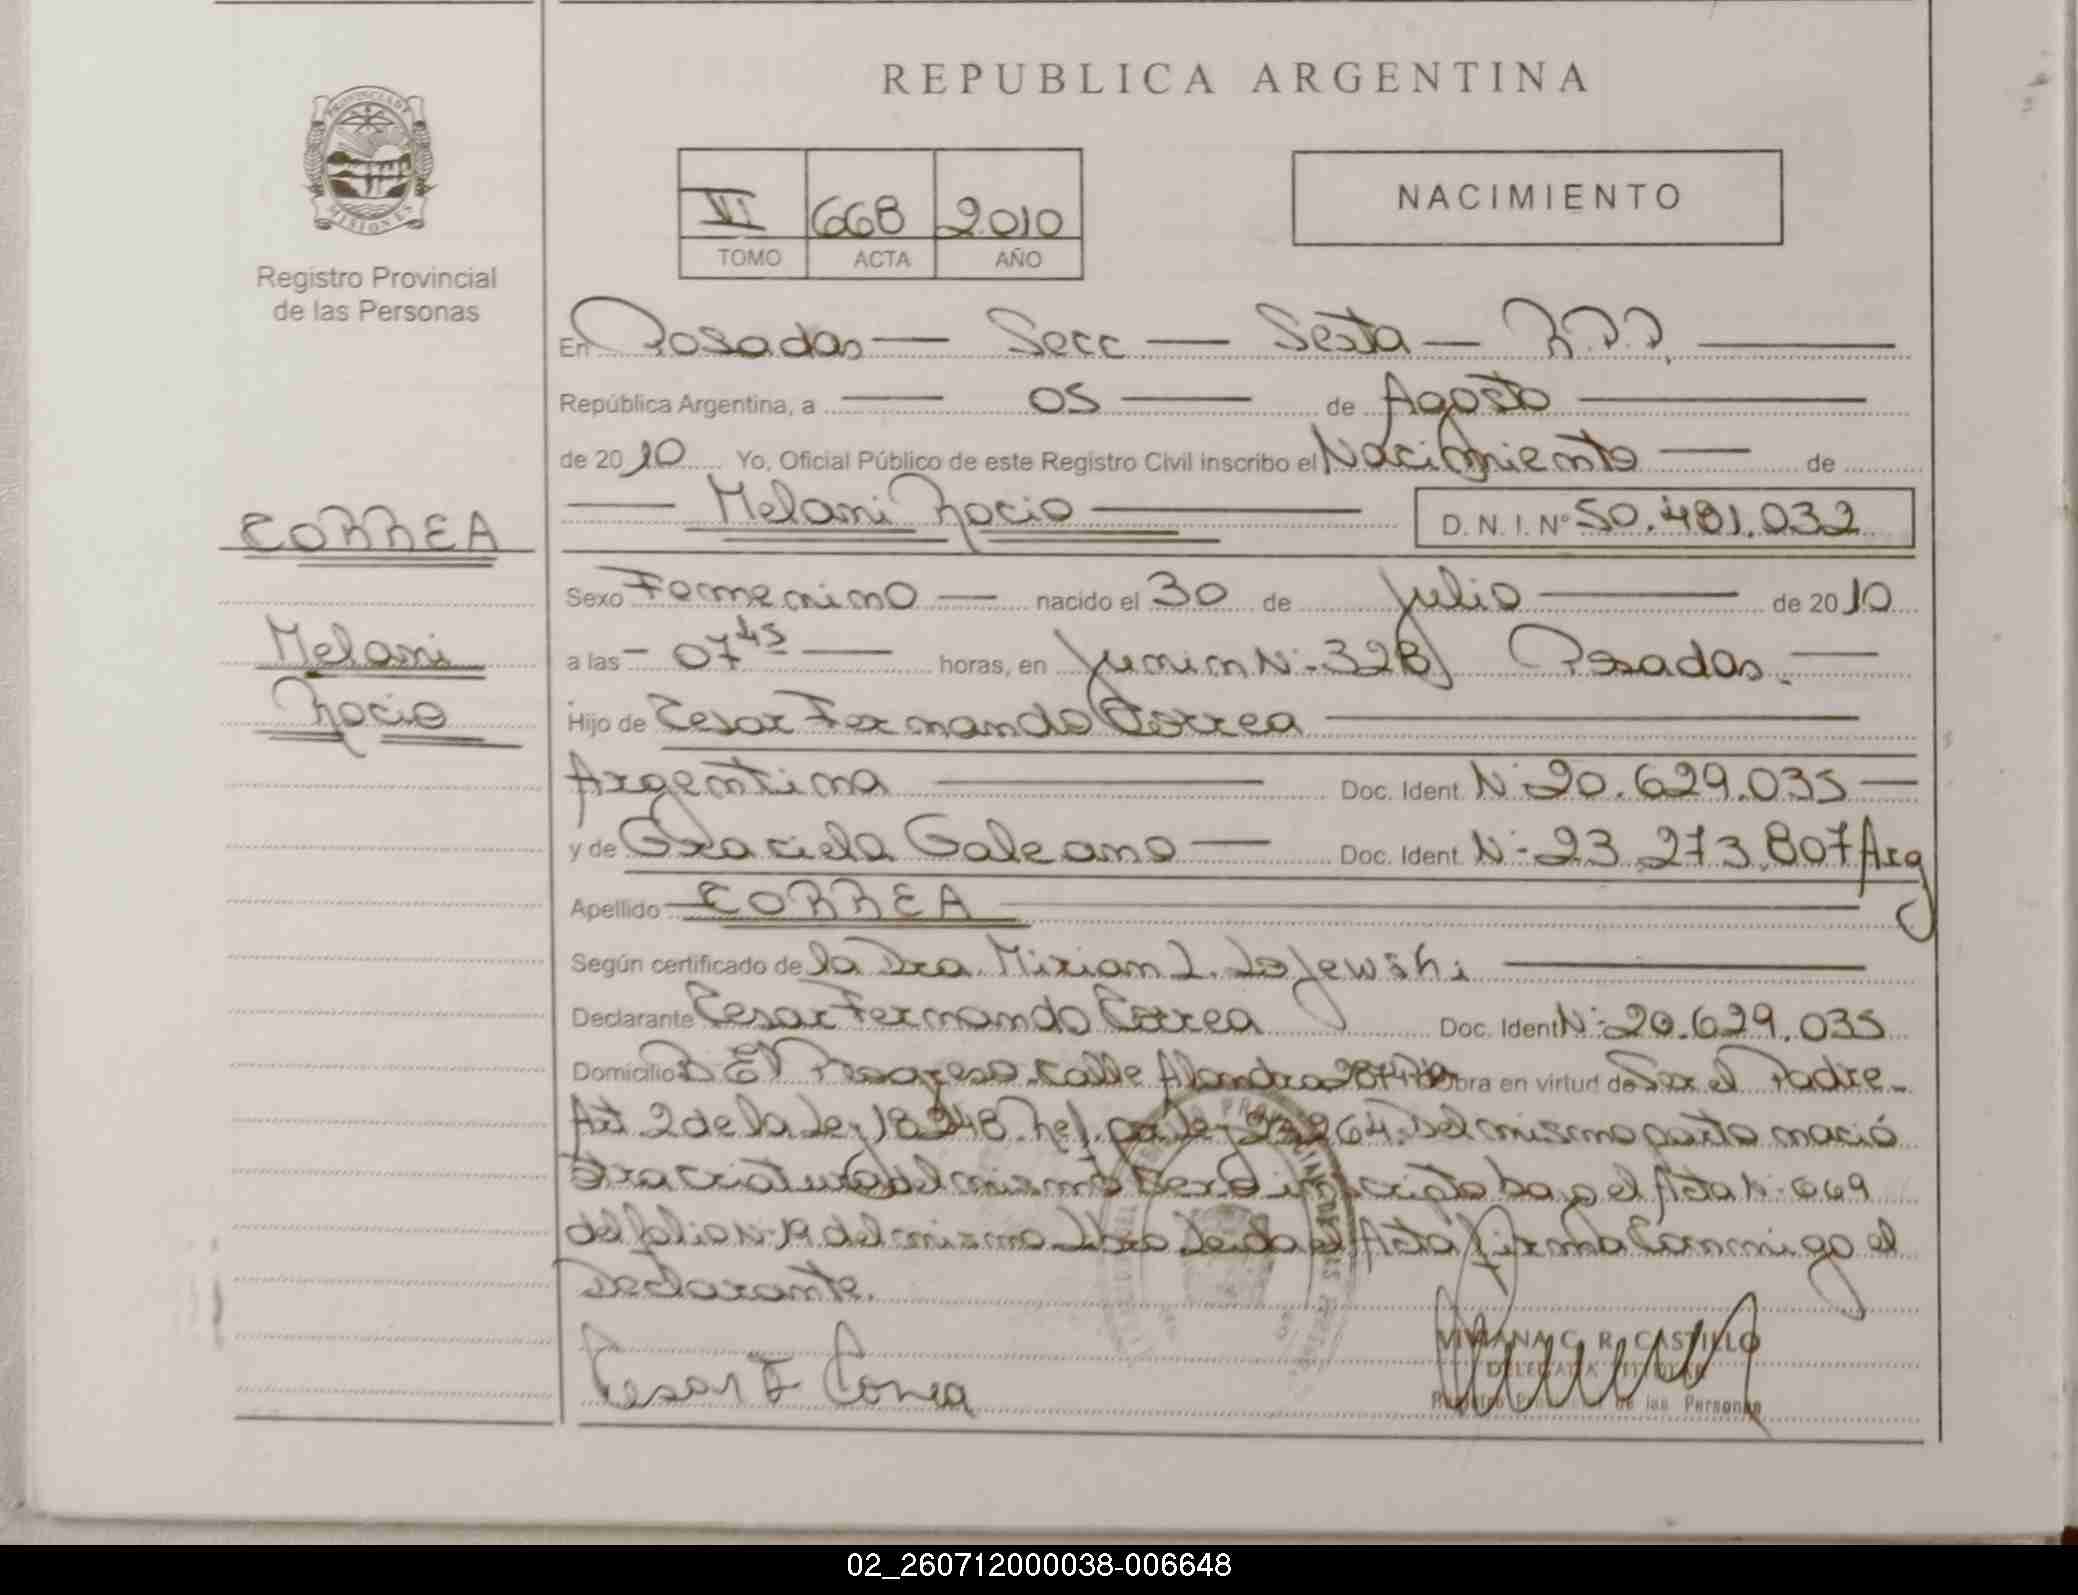 REPUBLICA ARGENTINA
PROVINCIA DE
MISIONES
Registro Provincial
de las Personas
VI 668 2010
TOMO ACTA AÑO
NACIMIENTO
En Posadas — Secc — Sesta — R.P.P.
República Argentina, a — 05 — de Agosto
de 2010 Yo, Oficial Público de este Registro Civil inscribo el Nacimiento — de
— Melani Rocio — D. N. I. Nº 50.481.032
CORREA
Melani
Rocio
Sexo Femenino — nacido el 30 de Julio — de 2010
a las - 07 45 — horas, en Junin N:- 328 Posadas.-
Hijo de Cesar Fernando Correa
Argentina — Doc. Ident. N:- 20.629.035 —
y de Graciela Galeano — Doc. Ident. N:- 23.273.807 Arg
Apellido CORREA
Según certificado de la Dra. Miriam L. Lojewski
Declarante Cesar Fernando Correa Doc. Ident N:- 20.629.035
Domicilio B El Progreso Calle obra en virtud de Ser el Padre.-
Art. 2 de la Ley 18248. Ref. por Ley 23264. Del mismo parto nació
Otra criatura del mismo Sexo inscripto bajo el Acta N:- 669
del folio N:- 19 del mismo Libro Leida el Acta firma Conmigo el
Declarante.
Cesar F Correa
VIVIANA C. R. CASTILLO
DELEGADA TITULAR
de las Personas
02_260712000038-006648